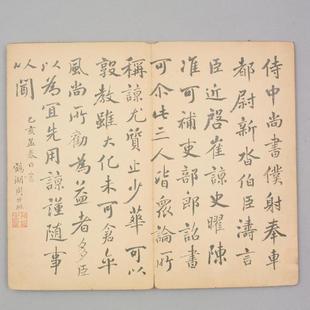 侍中尚書僕射奉車
都尉新沓伯臣濤言
臣近啓崔諒史曜陳
准可補吏部郎詔書
可尒此三人皆眾論所
稱諒尤質止少華可以
敦教雖大化未可倉卒
風尚所勸為益者多臣
以為宜先用諒謹隨事
以聞
乙亥孟春